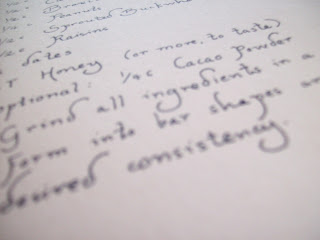 1/2 c
1/2 c Sprouted
1/2 c Raisins
dates
T Honey (or more, to taste)
optional: 1/4 c Cacao Powder
Grind all ingredients in a
form into bar shapes
desired consistency.